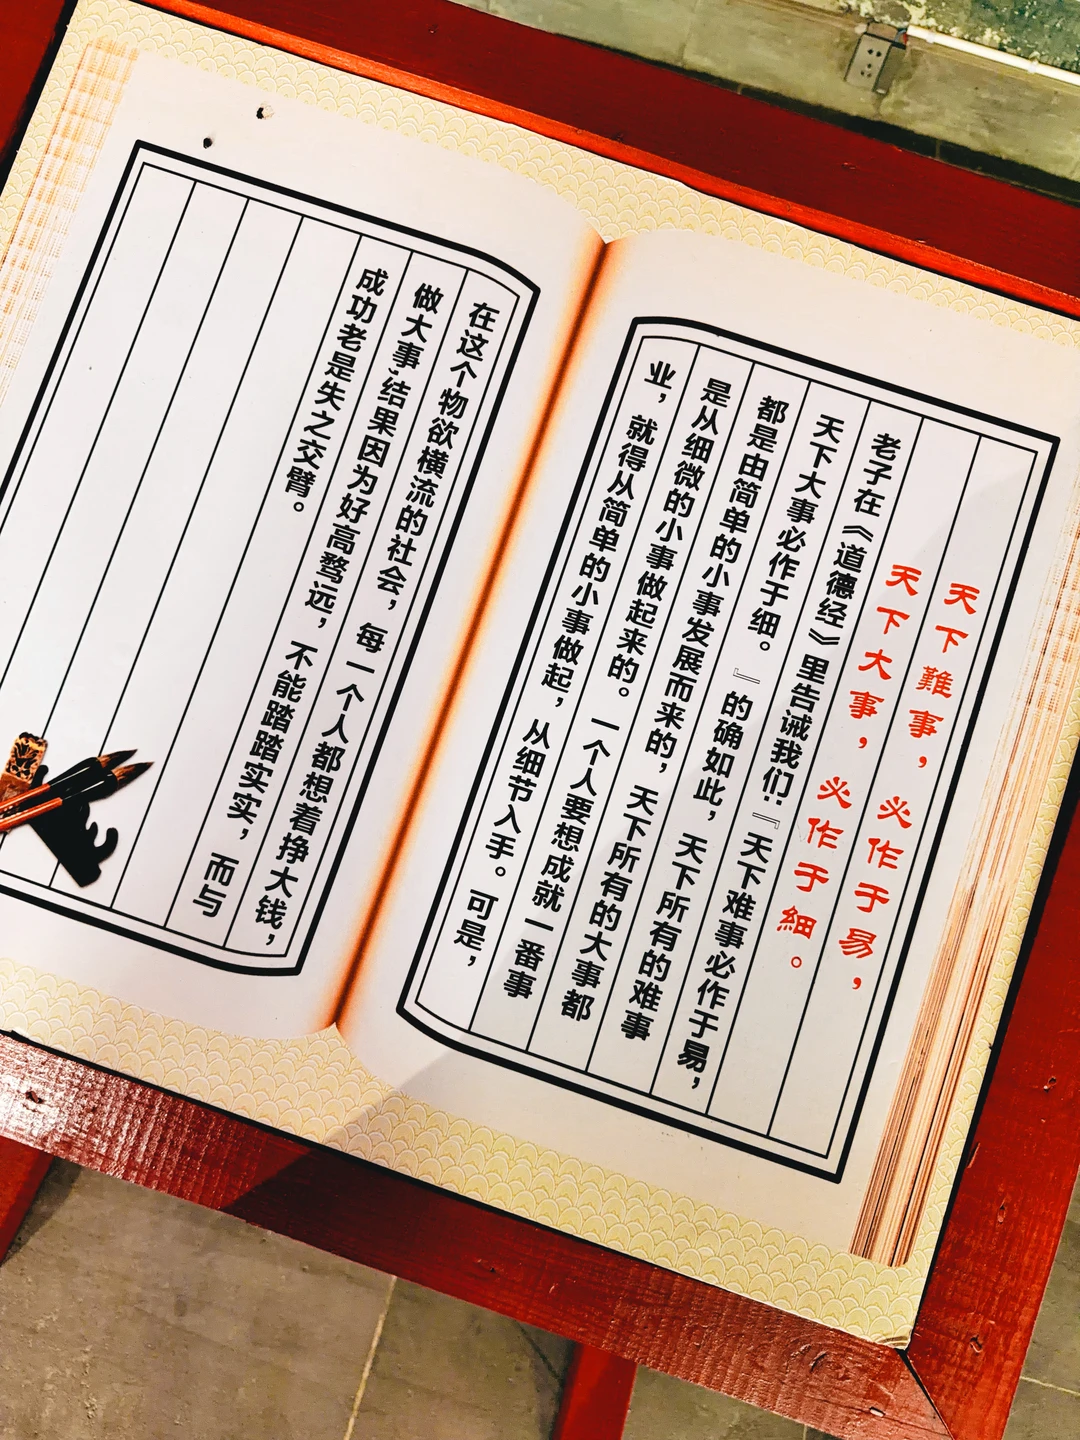 天下難事，必作于易，
天下大事，必作于細。
老子在《道德经》里告诫我们：『天下难事必作于易，
天下大事必作于细。』的确如此，天下所有的难事
都是由简单的小事发展而来的，天下所有的大事都
是从细微的小事做起来的。一个人要想成就一番事
业，就得从简单的小事做起，从细节入手。可是，
在这个物欲横流的社会，每一个人都想着挣大钱，
做大事，结果因为好高骛远，不能踏踏实实，而与
成功老是失之交臂。